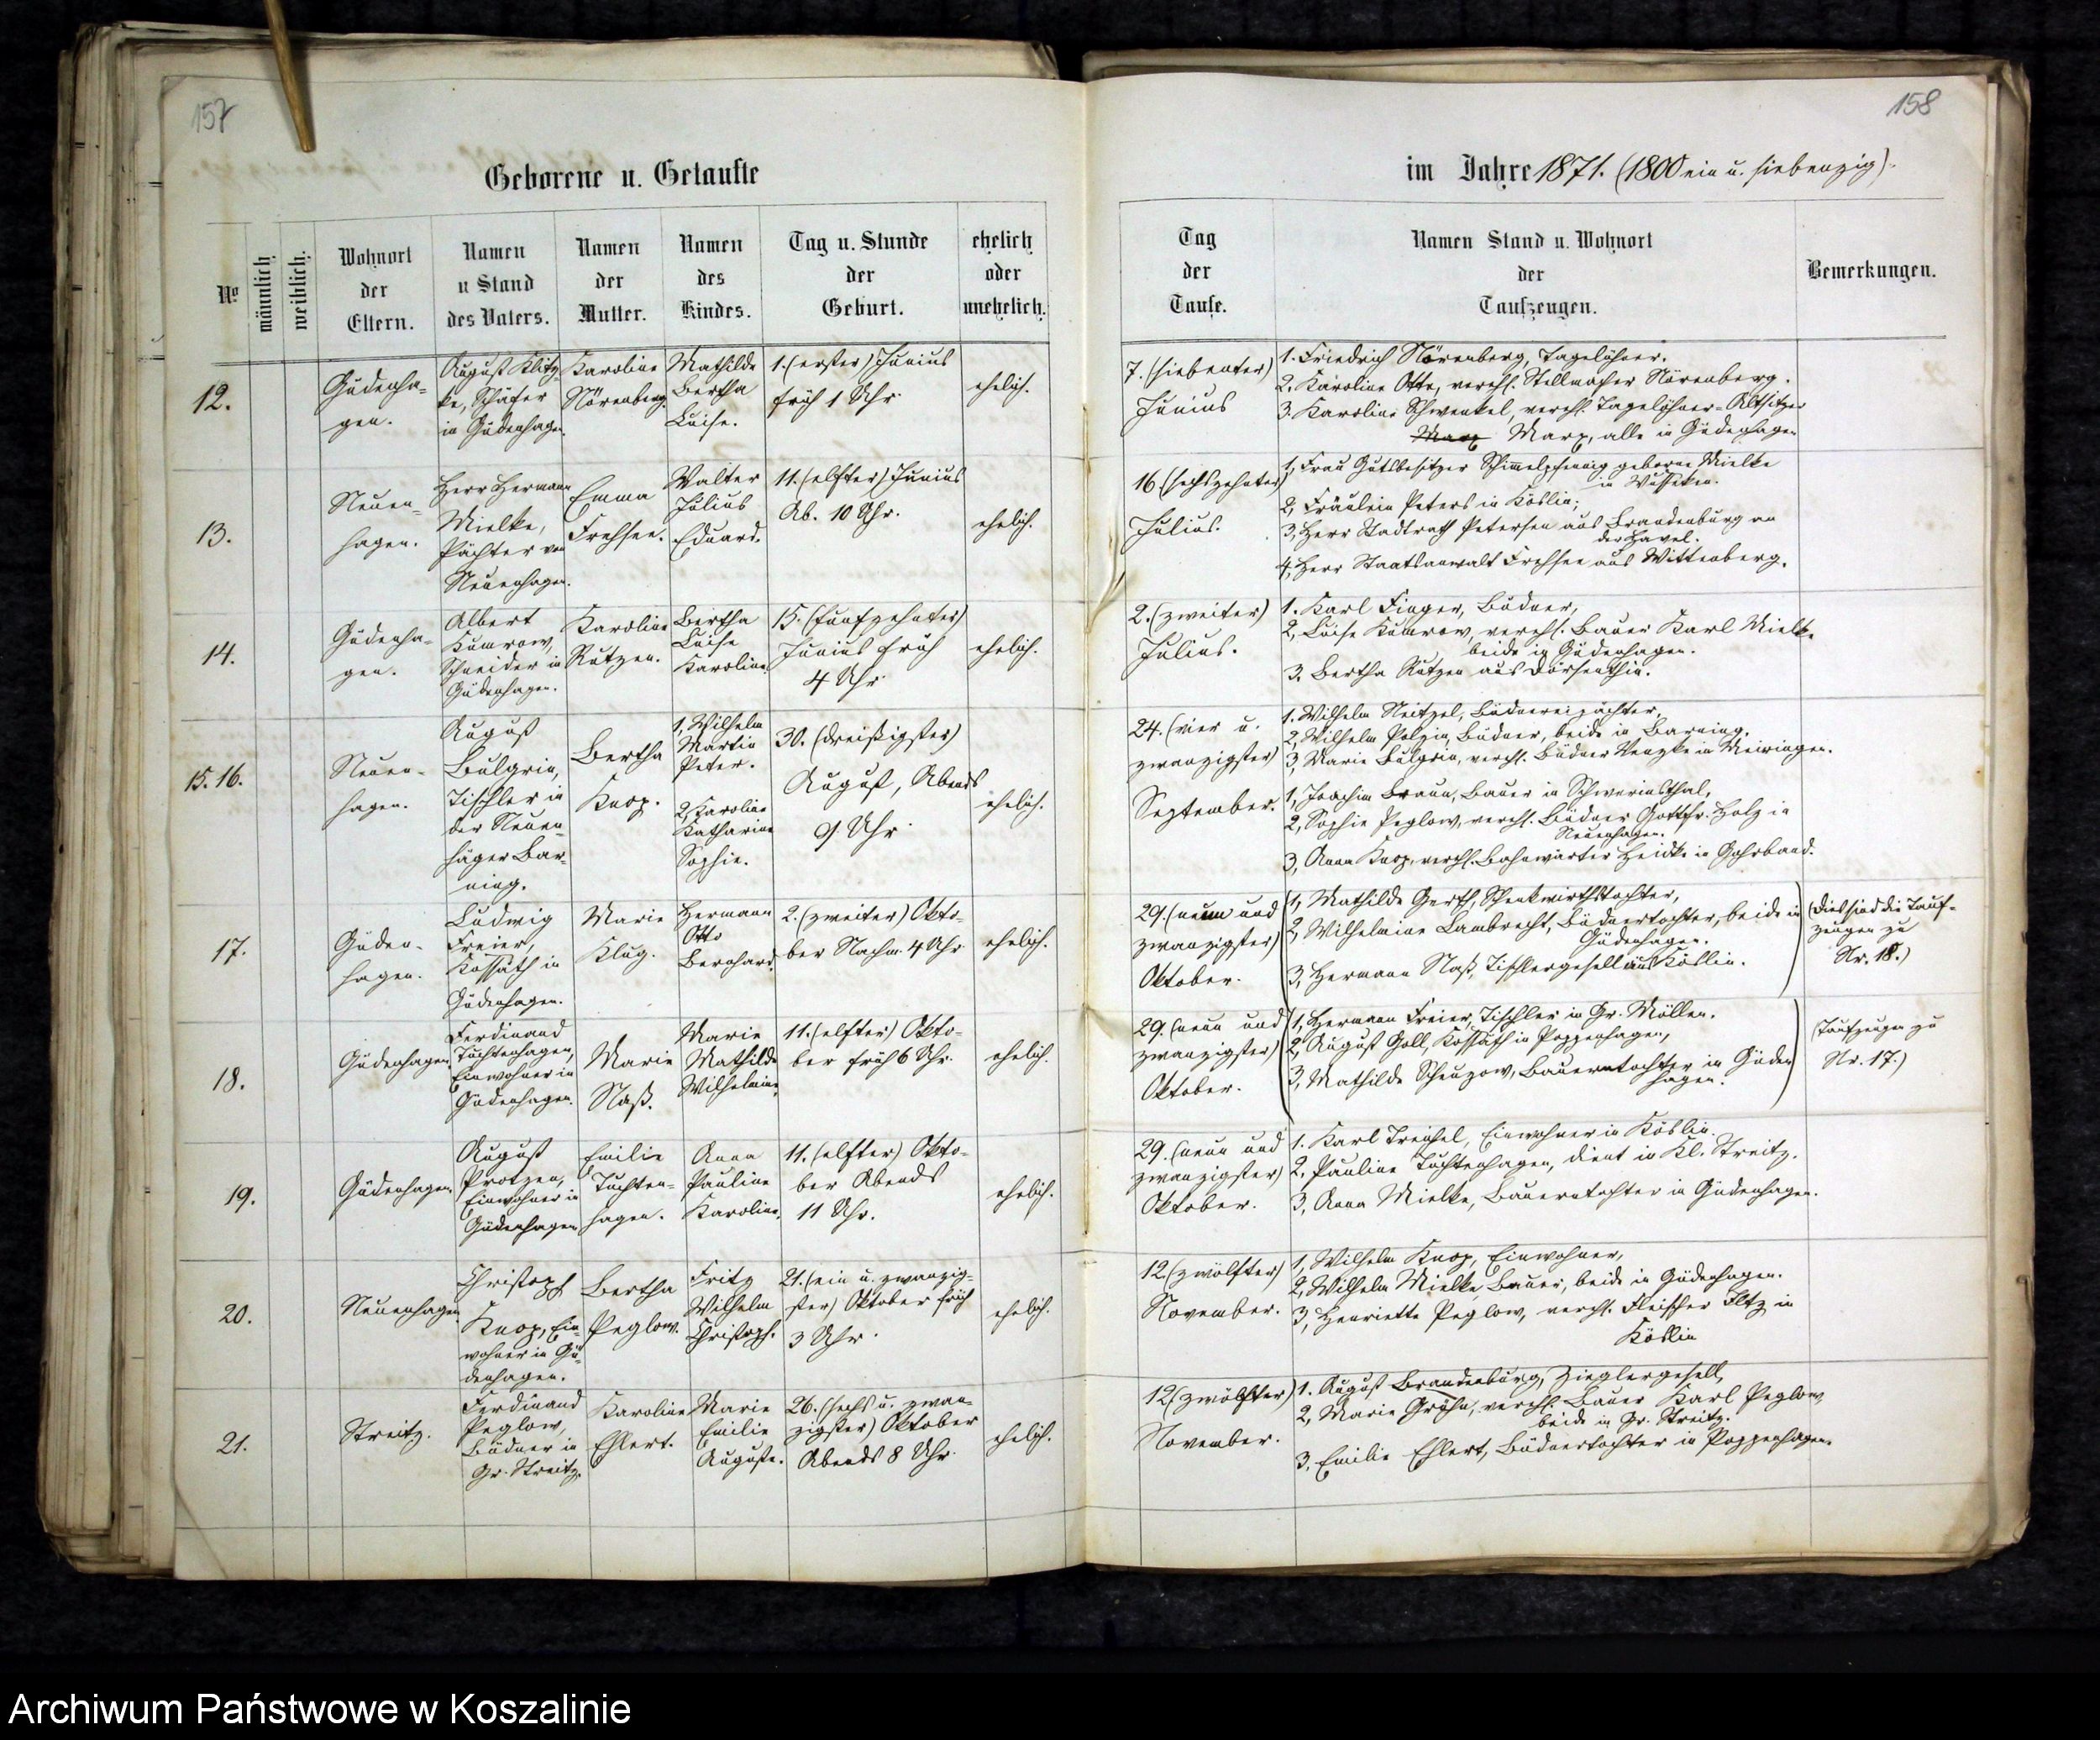 157
Geborene u. Getaufte
No
männlich
weiblich.
Wohnort
der
Eltern.
Namen
u Stand
des Vaters.
Namen
der
Mutter.
Namen
des
Kindes.
Tag u. Stunde
der
Geburt.
ehelich
oder
unehelich.
12.
Güdenha-
gen.
August Klitz-
ke, Schäfer
in Güdenhagen.
Karoline
Nörenberg.
Mathilde
Bertha
Luise.
1. (erster) Junius
früh 1 Uhr.
ehelich.
13.
Neuen-
hagen.
Herr Hermann
Mielke,
Pächter von
Neuenhagen.
Emma
Frehsee.
Walter
Julius
Eduard.
11. (elfter) Junius
Ab. 10 Uhr.
ehelich.
14.
Güdenha-
gen.
Albert
Kumrow,
Schneider in
Güdenhagen.
Karoline
Rutzen.
Bertha
Luise
Karoline.
15. (funfzehnter)
Junius früh
4 Uhr
ehelich.
15. 16.
Neuen-
hagen.
August
Bulgrin,
Tischler in
der Neuen-
häger Bar-
ning.
Bertha
Knop.
1, Wilhelm
Martin
Peter.
2, Karoline
Katharine
Sophie.
30. (dreißigster)
August, Abends
9 Uhr
ehelich.
17.
Güden-
hagen.
Ludwig
Freier,
Kossäth in
Güdenhagen.
Marie
Klug.
Hermann
Otto
Bernhard.
2. (zweiter) Okto-
ber Nachm. 4 Uhr
ehelich.
18.
Güdenhagen.
Ferdinand
Tuchtenhagen,
Einwohner in
Güdenhagen.
Marie
Naß.
Marie
Mathilde
Wilhelmine.
11. (elfter) Okto-
ber früh 6 Uhr.
ehelich.
19.
Güdenhagen.
August
Protzen,
Einwohner in
Güdenhagen
Emilie
Tuchten-
hagen.
Anna
Pauline
Karoline.
11. (elfter) Okto-
ber Abends
11 Uhr.
ehelich.
20.
Neuenhagen.
Christoph
Knop, Ein-
wohner in Gü-
denhagen.
Bertha
Peglow.
Fritz
Wilhelm
Christoph.
21. (ein u. zwanzig-
ster) Oktober früh
3 Uhr.
ehelich.
21.
Streitz.
Ferdinand
Peglow,
Büdner in
Gr. Streitz.
Karoline
Ehlert.
Marie
Emilie
Auguste.
26. (sechs u. zwan-
zigster) Oktober
Abends 8 Uhr.
ehelich.
158
im Jahre 1871. (1800 ein u. siebenzig).
Tag
der
Taufe.
Namen Stand u. Wohnort
der
Taufzeugen.
Bemerkungen.
7. (siebenter)
Junius
1. Friedrich Nörenberg, Tagelöhner.
2. Karoline Otto, verehl. Stellmacher Nörenberg.
3. Karoline Schwenkel, verehl. Tagelöhner-Altsitzer
Marx Marx, alle in Güdenhagen
16. (sechszehnter)
Julius.
1, Frau Gutsbesitzer Schimmelpfennig geborne Mielke
in Wusseken.
2, Fräulein Peters in Köslin;
3, Herr Stadtrath Petersen aus Brandenburg an
der Havel.
4, Herr Staatsanwalt Frehsee aus Wittenberg.
2. (zweiter)
Julius.
1. Karl Finger, Büdner,
2, Luise Kumrow, verehl. Bauer Karl Mielke
beide in Güdenhagen.
3. Bertha Rutzen aus Dörsenthin.
24. (vier u.
zwanzigster)
September.
1. Wilhelm Neitzel, Büdnereipächter,
2, Wilhelm Polzin, Büdner, beide in Barning.
3, Marie Bulgrin, verehl. Büdner Venzke in Meiringen.
1, Joachim Braun, Bauer in Schwerinsthal,
2, Sophie Peglow, verehl. Büdner Gottfr. Holz in
Neuenhagen.
3, Anna Knop, verehl. Bahnwärter Heidke in Gohrband.
29. (neun und
zwanzigster)
Oktober.
1, Mathilde Gerth, Schenkwirthstochter,
2, Wilhelmine Lambrecht, Büdnertochter, beide in
Güdenhagen.
3, Hermann Naß, Tischlergesell aus Köslin.
(Dies sind die Tauf-
zeugen zu
Nr. 18.)
29. (neun und
zwanzigster)
Oktober.
1, Hermann Freier, Tischler in Gr. Möllen.
2, August Goll, Kossäth in Poppenhagen,
3, Mathilde Scheunow, Bauerntochter in Güden
hagen.
(Taufzeugen zu
Nr. 17.)
29. (neun und
zwanzigster)
Oktober.
1. Karl Treichel, Einwohner in Köslin.
2. Pauline Tuchtenhagen, dient in Kl. Streitz.
3, Anna Mielke, Bauerntochter in Güdenhagen.
12. (zwölfter)
November.
1, Wilhelm Knop, Einwohner,
2, Wilhelm Mielke, Bauer, beide in Güdenhagen.
3, Henriette Peglow, verehl. Fleischer Iltz in
Köslin
12. (zwölfter)
November.
1. August Brandenburg, Zieglergesell,
2, Marie Gröhn, verehl. Bauer Karl Peglow,
beide in Gr. Streitz.
3, Emilie Ehlert, Büdnertochter in Poppenhagen.
Archiwum Państwowe w Koszalinie